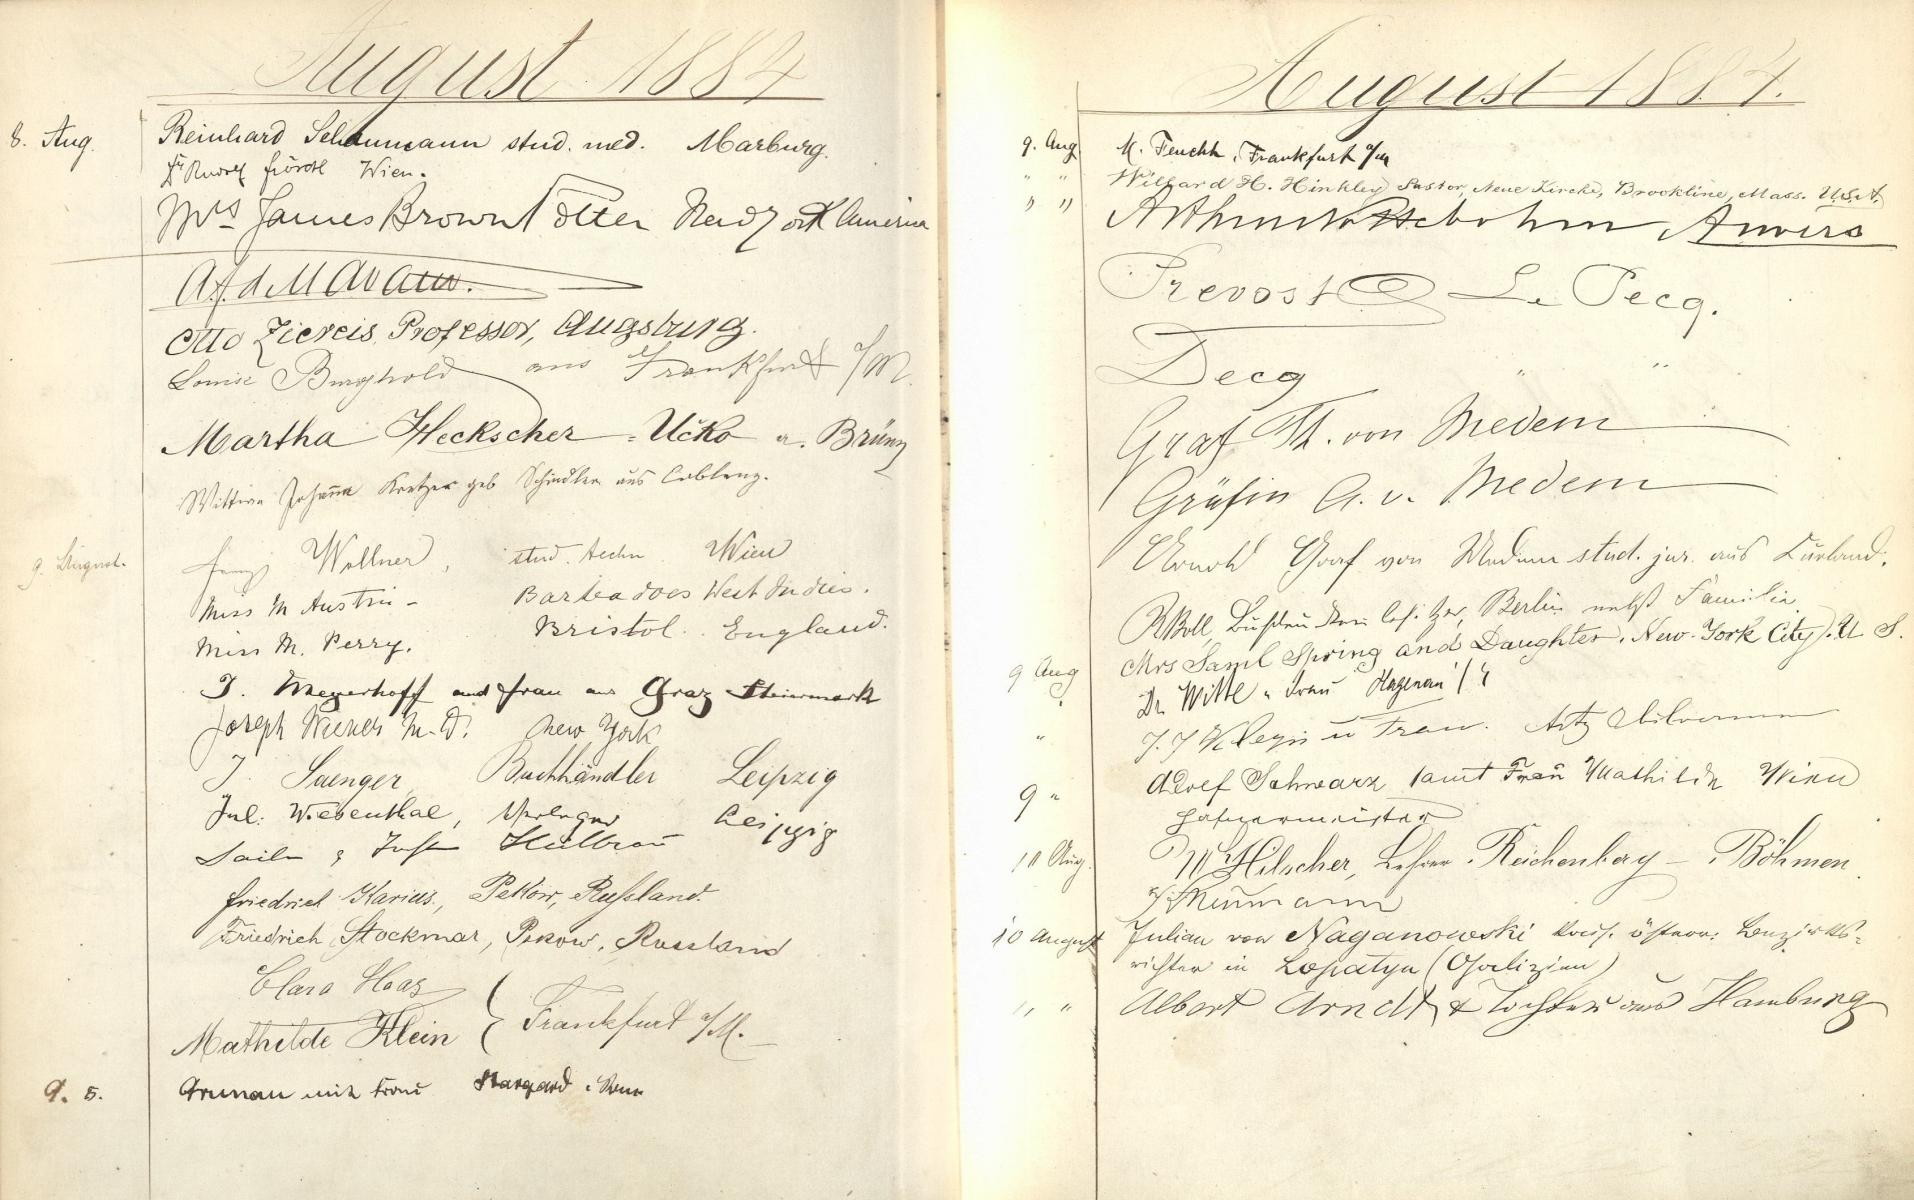 August 1884
8. Aug. Reinhard Schaumann stud. med. Marburg.
Dr Rudolf Wien.
Mrs James Brown Potter New York America
Otto Ziereis, Professor, Augsburg.
Louise Burghold aus Frankfurt a/M.
Martha Heckscher-Ucko a. Brünn
Wittwe Johanna geb Schindler aus Coblenz.
9. August. Franz Wollner, stud. techn Wien
Miss M Austin - Barbadoes West Indies.
Miss M. Perry. Bristol. England.
J. Meyerhoff und Frau aus Graz Steiermark
Joseph Wiener M.D. New York
J. Saenger Buchhändler Leipzig
Jul: Wiesenthal, Leipzig
Friedrich Karius, Pskow, Russland.
Friedrich Stockmar, Pskow, Russland
Clara Haas
Mathilde Klein Frankfurt a/M.
9. 5. Grunau mit Frau Stargard
August 1884.
9. Aug. M. Feucht, Frankfurt a/M
" " Willard H. Hinkley, Pastor, Neue Kirche, Brookline, Mass. U.S.A.
" " Anvers
Prevost Le Pecq.
Decq " "
Graf Th. von Medem
Gräfin A. v. Medem
Graf von Medem stud. jur. aus Kurland.
Berlin nebst Familie
Mrs Saml Spring and Daughter, New-York City. U S.
9 Aug Dr. Witte u Frau Hagenau
" u Frau.
9 " Adolf Schwarz samt Frau Mathilde Wien
Hafnermeister
10 Aug. W Hilscher, Lehrer. Reichenberg - Böhmen.
Neumann
10 August Julian von Naganowski kais. österr. Bezirks-
richter in Lopatyn (Galizien)
" " Albert Arndt & Tochter aus Hamburg